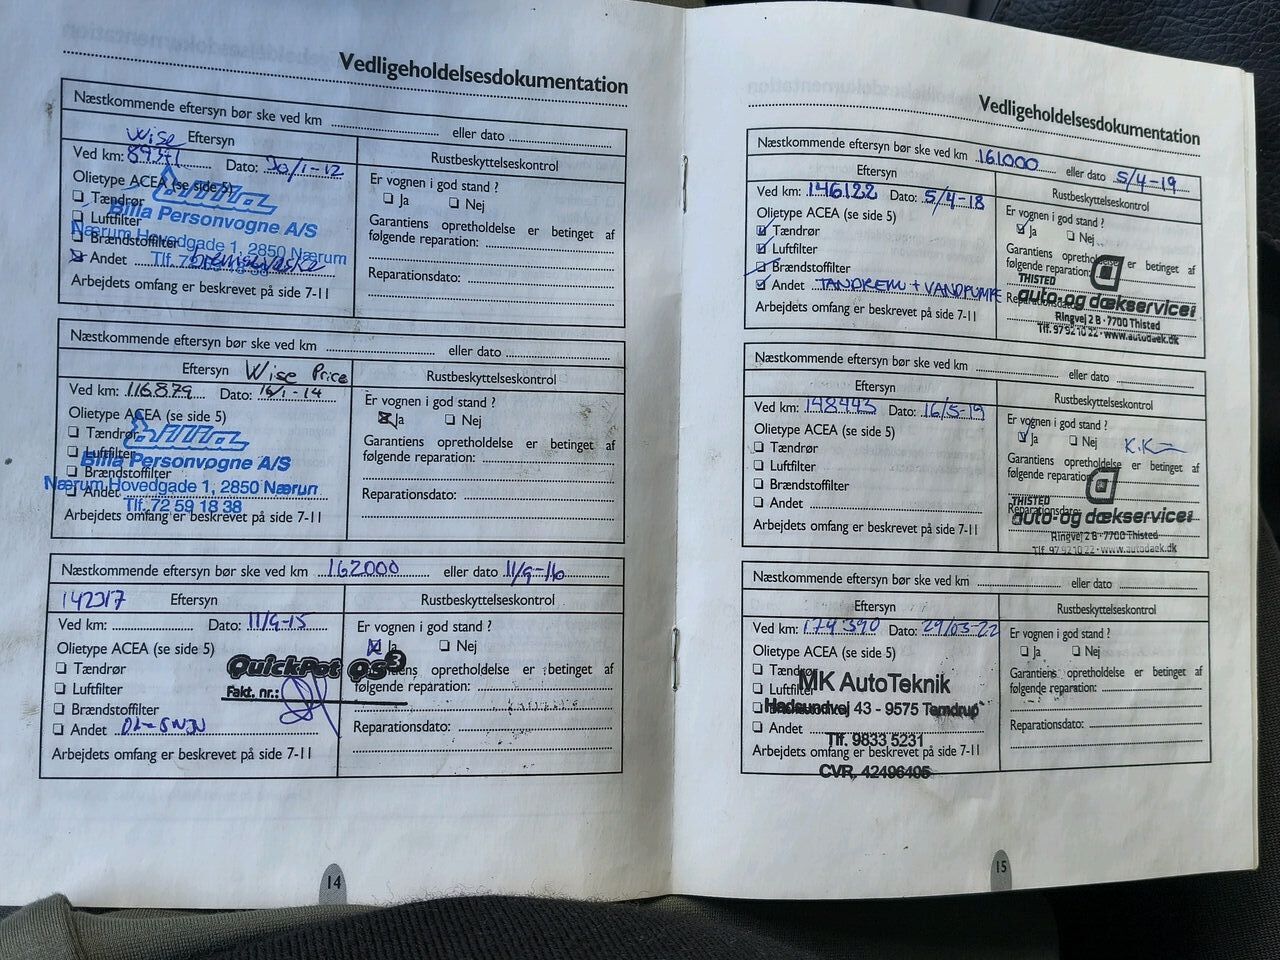 Vedligeholdelsesdokumentation
Næstkommende eftersyn bør ske ved km ........ eller dato ........
Wise Eftersyn
Rustbeskyttelseskontrol
Ved km: Dato: 30/1-12
Er vognen i god stand ?
Olietype ACEA (se side 5)
❏ Ja ❏ Nej
❏ Tændrør
Garantiens opretholdelse er betinget af
❏ Luftfilter
følgende reparation:
❏ Brændstoffilter
❏ Andet bremsevæske
Reparationsdato:
Arbejdets omfang er beskrevet på side 7-11
Billa
Billa Personvogne A/S
Nærum Hovedgade 1, 2850 Nærum
Tlf. 72 59 18 38
Næstkommende eftersyn bør ske ved km ........ eller dato ........
Eftersyn Wise Price
Rustbeskyttelseskontrol
Ved km: 116.879 Dato: 16/1-14
Er vognen i god stand ?
Olietype ACEA (se side 5)
☒ Ja ❏ Nej
❏ Tændrør
Garantiens opretholdelse er betinget af
❏ Luftfilter
følgende reparation:
❏ Brændstoffilter
❏ Andet
Reparationsdato:
Arbejdets omfang er beskrevet på side 7-11
Billa
Billa Personvogne A/S
Nærum Hovedgade 1, 2850 Nærum
Tlf. 72 59 18 38
Næstkommende eftersyn bør ske ved km 162000 eller dato 11/9-16
142317 Eftersyn
Rustbeskyttelseskontrol
Ved km: Dato: 11/9-15
Er vognen i god stand ?
Olietype ACEA (se side 5)
☒ Ja ❏ Nej
❏ Tændrør
Garantiens opretholdelse er betinget af
❏ Luftfilter
følgende reparation:
❏ Brændstoffilter
❏ Andet
Reparationsdato:
Arbejdets omfang er beskrevet på side 7-11
QuickPot QS3
Fakt. nr.:
14
Vedligeholdelsesdokumentation
Næstkommende eftersyn bør ske ved km 161000 eller dato 5/4-19
Eftersyn
Rustbeskyttelseskontrol
Ved km: 146122 Dato: 5/4-18
Er vognen i god stand ?
Olietype ACEA (se side 5)
☑ Ja ❏ Nej
☑ Tændrør
Garantiens opretholdelse er betinget af
☑ Luftfilter
følgende reparation:
❏ Brændstoffilter
☑ Andet TANDREM + VANDPUMPE
Reparationsdato:
Arbejdets omfang er beskrevet på side 7-11
THISTED
auto-og dækservice
Ringvej 2 B · 7700 Thisted
Tlf. 97 92 10 22 · www.autodaek.dk
Næstkommende eftersyn bør ske ved km ........ eller dato ........
Eftersyn
Rustbeskyttelseskontrol
Ved km: 148443 Dato: 16/5-19
Er vognen i god stand ?
Olietype ACEA (se side 5)
☑ Ja ❏ Nej
❏ Tændrør
Garantiens opretholdelse er betinget af
❏ Luftfilter
følgende reparation:
❏ Brændstoffilter
❏ Andet
Reparationsdato:
Arbejdets omfang er beskrevet på side 7-11
THISTED
auto-og dækservice
Ringvej 2 B · 7700 Thisted
Tlf. 97 92 10 22 · www.autodaek.dk
Næstkommende eftersyn bør ske ved km ........ eller dato ........
Eftersyn
Rustbeskyttelseskontrol
Ved km: 174390 Dato: 29/03-22
Er vognen i god stand ?
Olietype ACEA (se side 5)
❏ Ja ❏ Nej
❏ Tændrør
Garantiens opretholdelse er betinget af
❏ Luftfilter
følgende reparation:
❏ Brændstoffilter
❏ Andet
Reparationsdato:
Arbejdets omfang er beskrevet på side 7-11
MK AutoTeknik
Hadsundvej 43 - 9575 Terndrup
Tlf. 9833 5231
CVR. 42496405
15